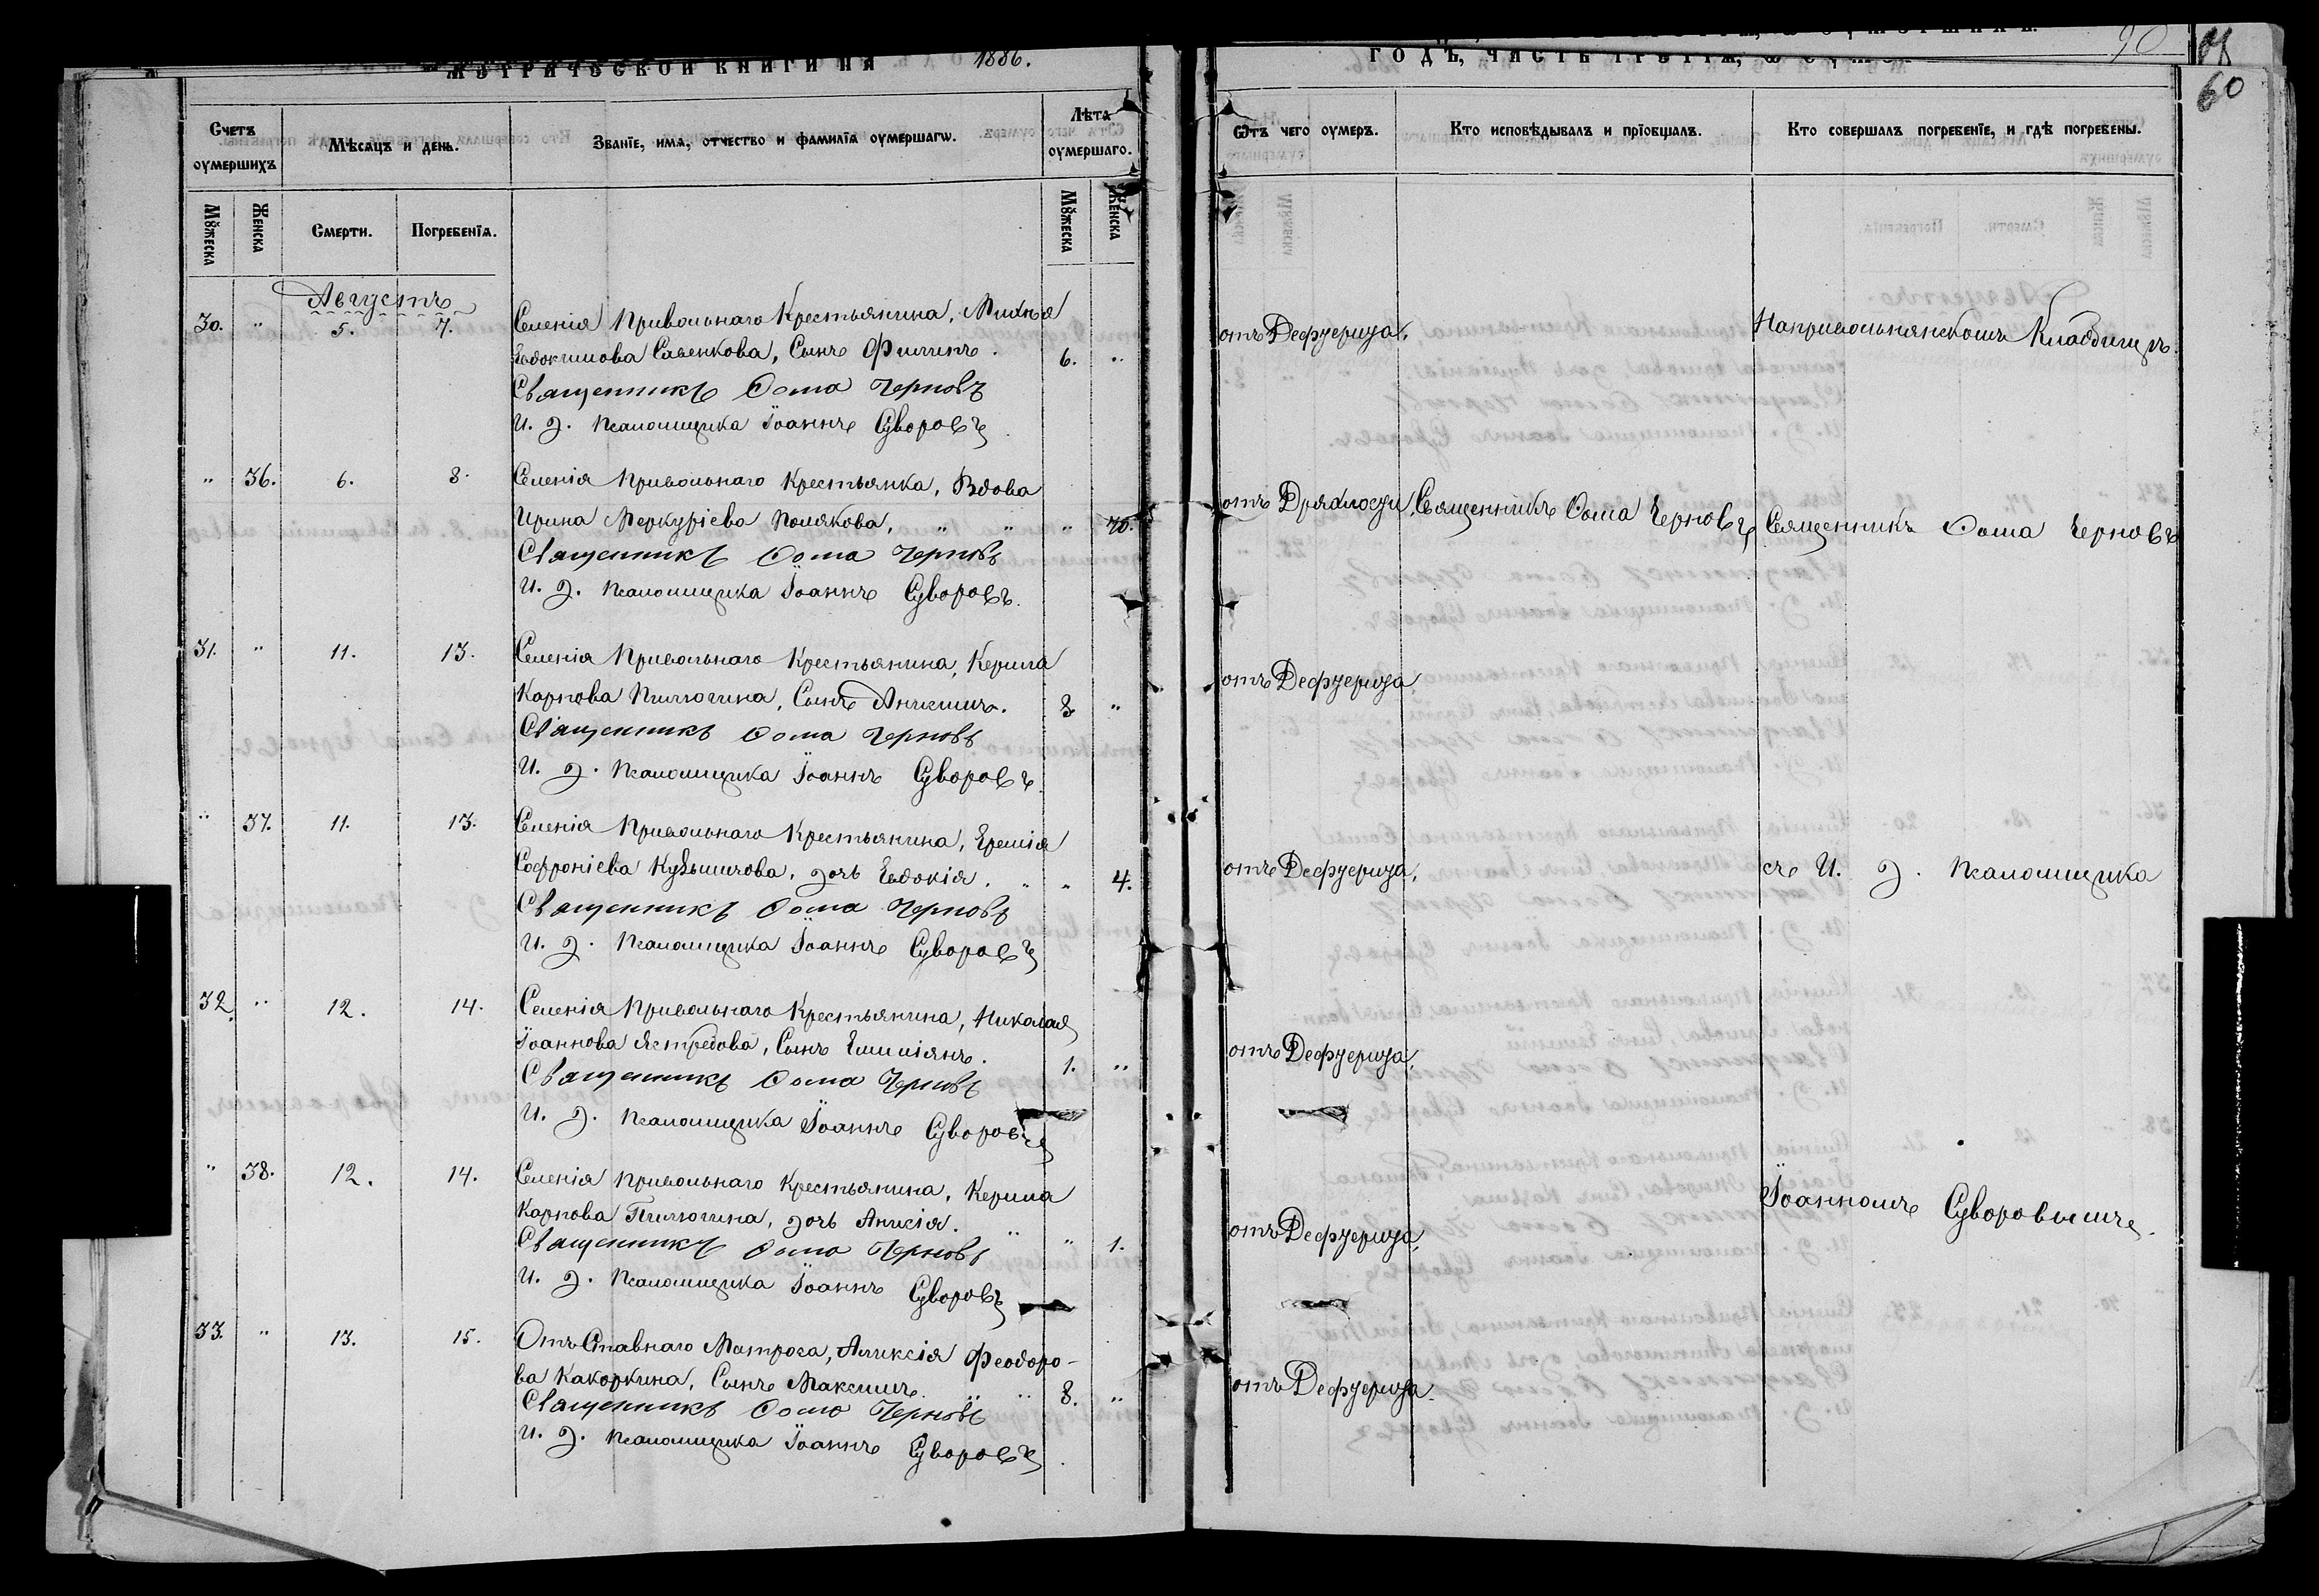 МЕТРИЧЕСКОЙ КНИГИ НА 1886.
ГОДЪ, ЧАСТЬ ТРЕТЇѦ,
90
60
Счетъ оумершихъ
Мѣсѧцъ и день.
Званїе, имѧ, отчество и фамилїа оумершагѡ.
Лѣта оумершаго.
Ѿтъ чего оумеръ.
Кто исповѣдывалъ и прїобщалъ.
Кто совершалъ погребенїе, и гдѣ погребены.
Мꙋжеска
Женска
Смерти.
Погребенїѧ.
Мꙋжеска
Женска
Августъ
30. " 5. 7. Селенія Привольнаго Крестьянина,
Евдокимова Савенкова, Сынъ Филипъ. 6. "
отъ Дефтерита,
На привольнянскомъ Кладбищѣ.
Священникъ Ѳома Черновъ
И. д. Псаломщика Іоаннъ Суворовъ
" 36. 6. 8. Селенія Привольнаго Крестьянка, Вдова
Ирина Меркуріева Полякова, " " " 70.
отъ Дряхлости, Священникъ Ѳома Черновъ
Священникъ Ѳома Черновъ
Священникъ Ѳома Черновъ
И. д. Псаломщика Іоаннъ Суворовъ.
31. " 11. 13. Селенія Привольнаго Крестьянина, Керила
Карпова Пилюгина, Сынъ Анисимъ. 3 "
отъ Дефтерита
Священникъ Ѳома Черновъ
И. д. Псаломщика Іоаннъ Суворовъ.
" 37. 11. 13. Селенія Привольнаго Крестьянина, Еремія
Софроніева Кузьмичова, дочь Евдокія. " " 4.
отъ Дефтерита,
съ И. д. Псаломщика
Священникъ Ѳома Черновъ
И. д. Псаломщика Іоаннъ Суворовъ
32. " 12. 14. Селенія Привольнаго Крестьянина, Николая
Іоаннова Ястребова, Сынъ Емиліянъ. 1. "
отъ Дефтерита,
Священникъ Ѳома Черновъ
И. д. Псаломщика Іоаннъ Суворовъ
" 38. 12. 14. Селенія Привольнаго Крестьянина, Керила
Карпова Пилюгина, дочь Анисія. " " 1.
отъ Дефтерита,
Іоанномъ Суворовымъ.
Священникъ Ѳома Черновъ
И. д. Псаломщика Іоаннъ Суворовъ
33. " 13. 15. Отъ Ставнаго Матроса, Аликсія Феодоро-
ва Какоркина, Сынъ Максимъ. " " 8. "
отъ Дефтерита.
Священникъ Ѳома Черновъ
И. д. Псаломщика Іоаннъ Суворовъ